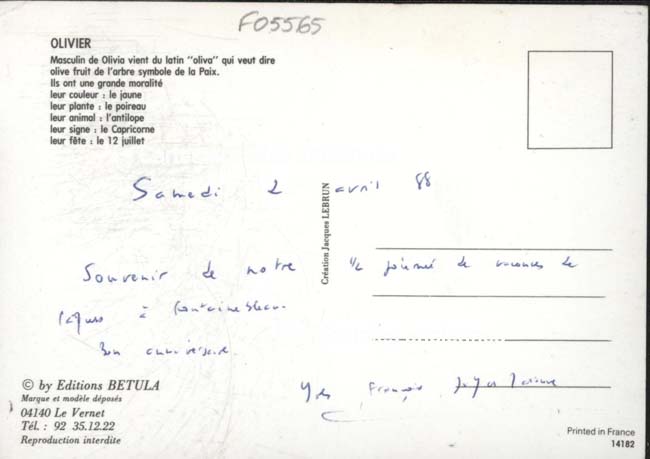 F05565
OLIVIER
Masculin de Olivia vient du latin "oliva" qui veut dire
olive fruit de l'arbre symbole de la Paix.
Ils ont une grande moralité
leur couleur : le jaune
leur plante : le poireau
leur animal : l'antilope
leur signe : le Capricorne
leur fête : le 12 juillet
Samedi 2 avril 88
Souvenir de notre 1/2 journée de vacances de
Pâques à Fontainebleau.
Bon anniversaire.
Yves François
Création Jacques LEBRUN
© by Editions BETULA
Marque et modèle déposés
04140 Le Vernet
Tél. : 92 35.12.22
Reproduction interdite
Printed in France
14182